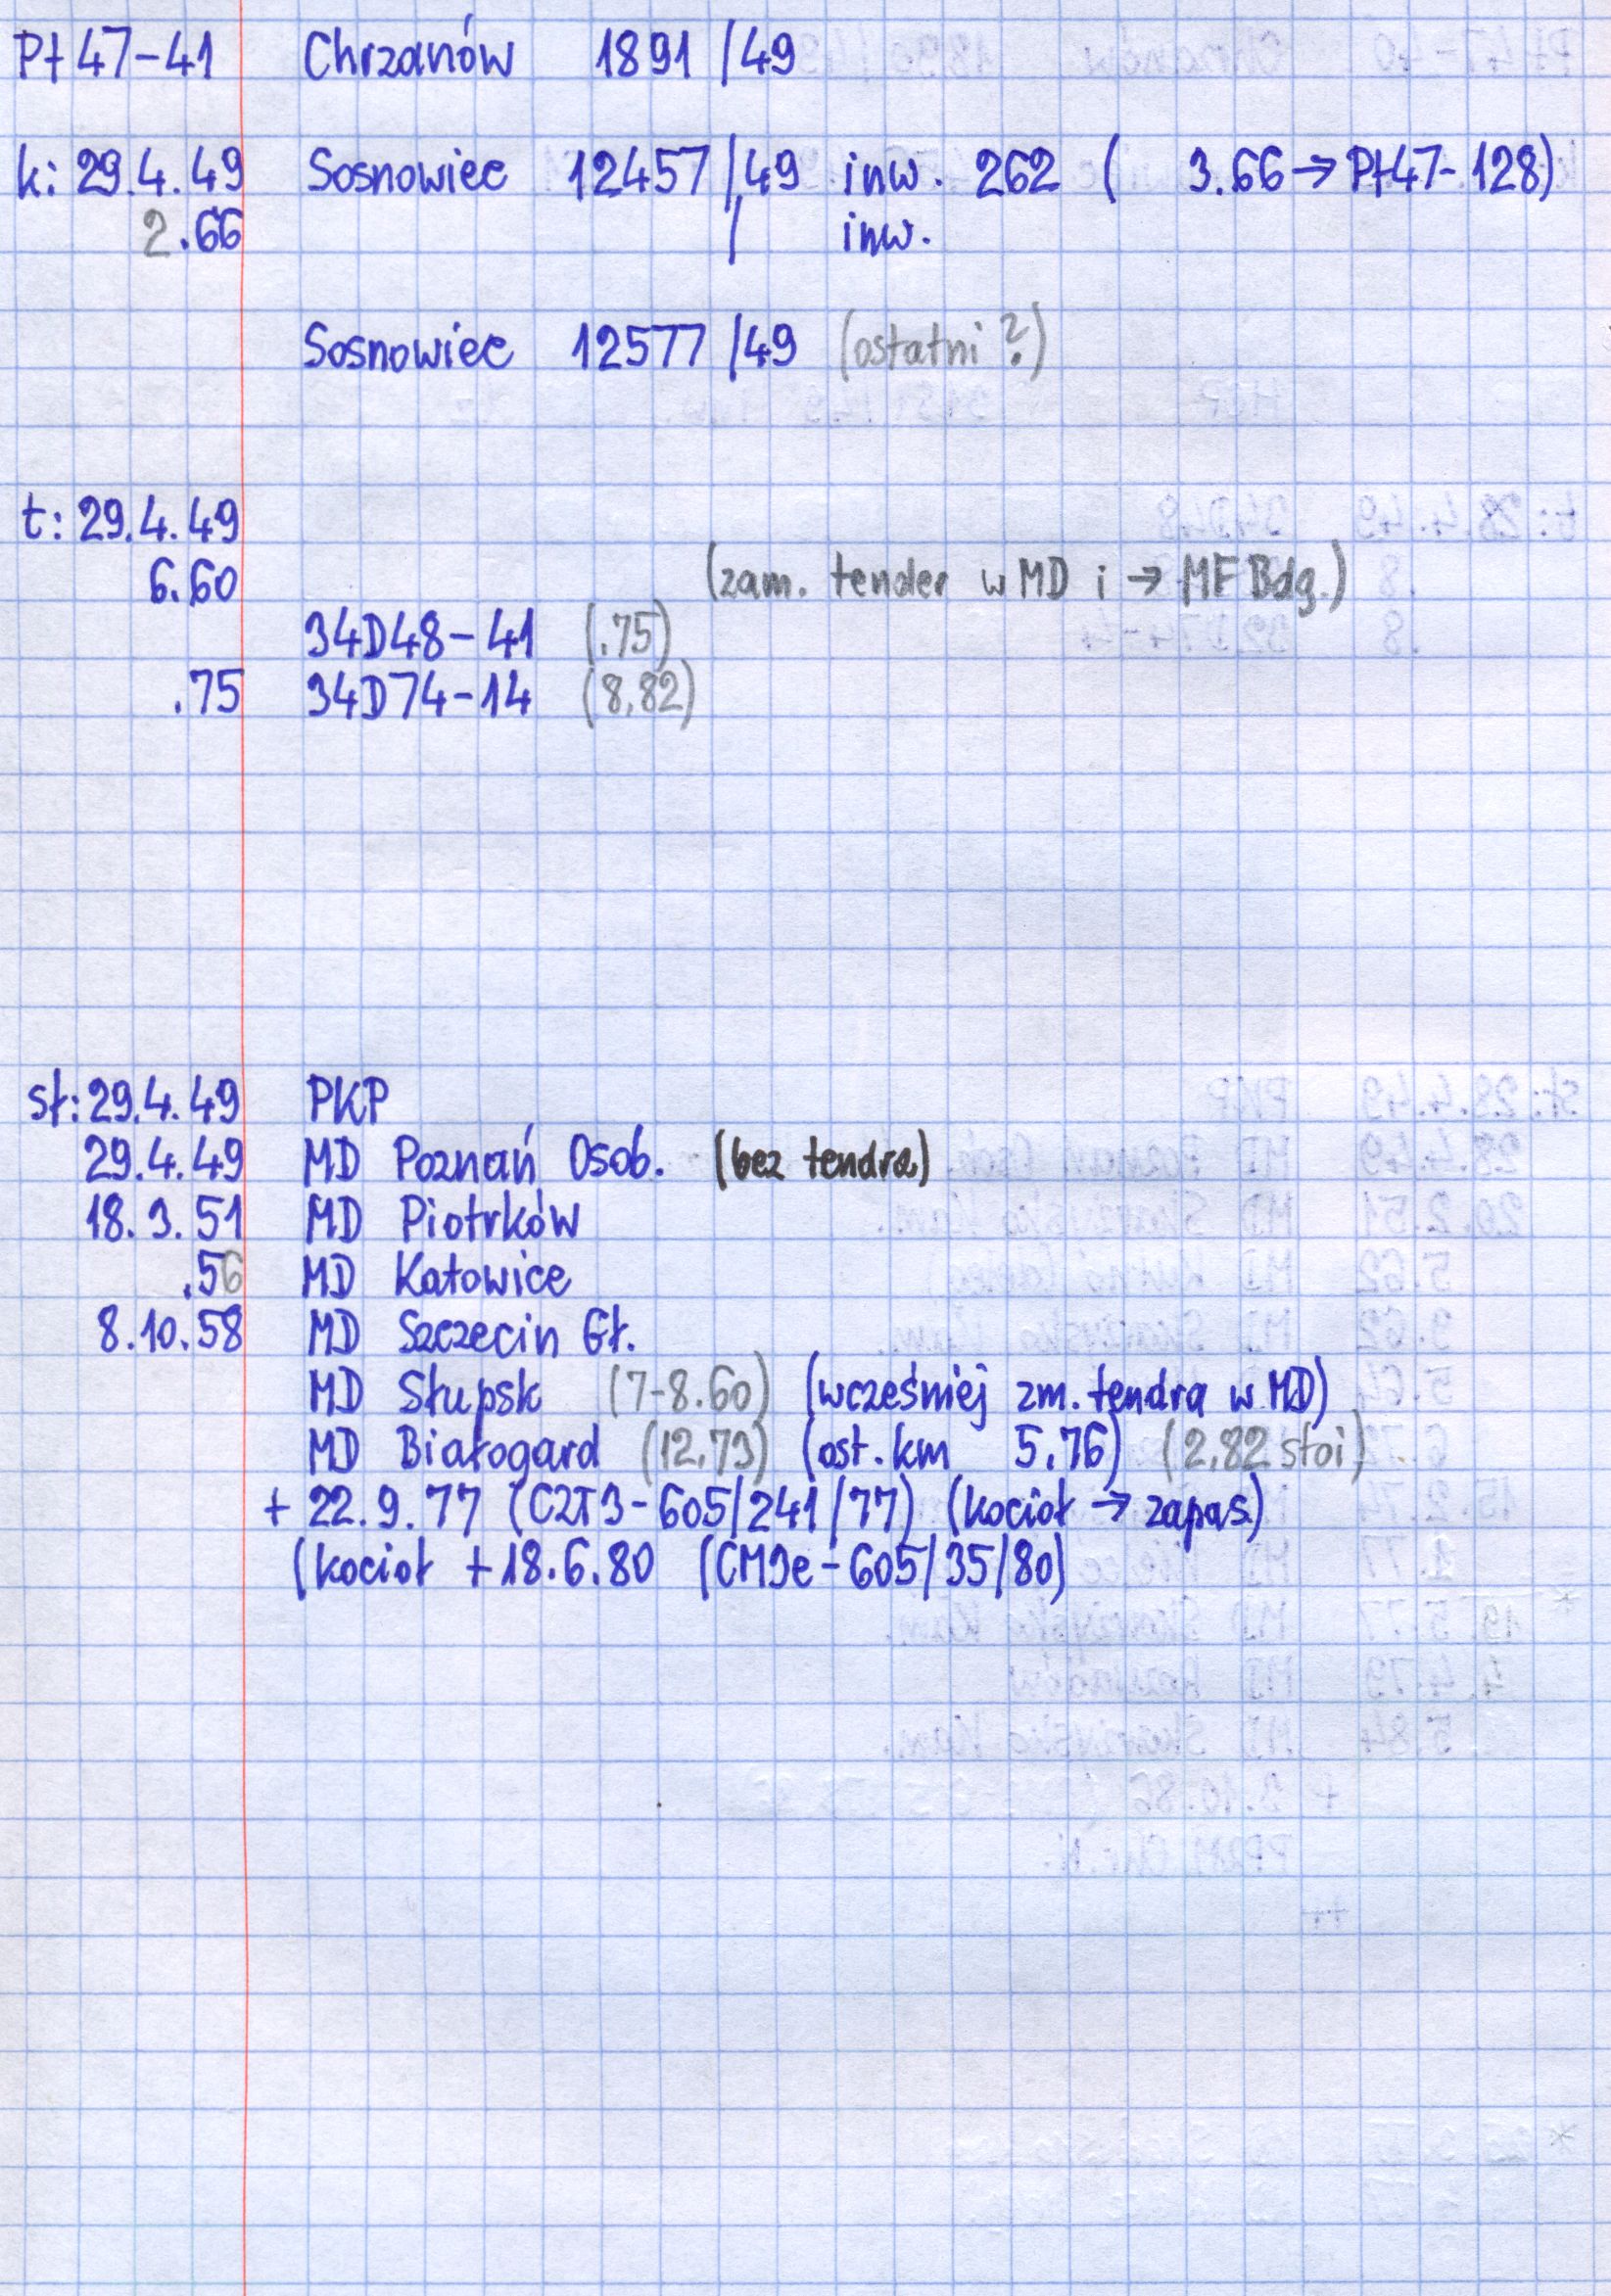 Pt47-41 Chrzanów 1891/49
k: 29.4.49 Sosnowiec 12457/49 inw. 262 ( 3.66→Pt47-128)
2.66 / inw.
Sosnowiec 12577/49 (ostatni?)
t: 29.4.49
6.60 (zam. tender w MD i → MF Bdg.)
34D48-41 (.75)
.75 34D74-14 (8,82)
st: 29.4.49 PKP
29.4.49 MD Poznań Osob. (bez tendra)
18.3.51 MD Piotrków
.56 MD Katowice
8.10.58 MD Szczecin Gł.
MD Słupsk (7-8.60) (wcześniej zm. tendra w MD)
MD Białogard (12,73) (ost. km 5.76) (2,82 stoi)
+ 22.9.77 (CZT3-605/241/77) (kocioł → zapas)
(kocioł +18.6.80 (CM3e-605/35/80)